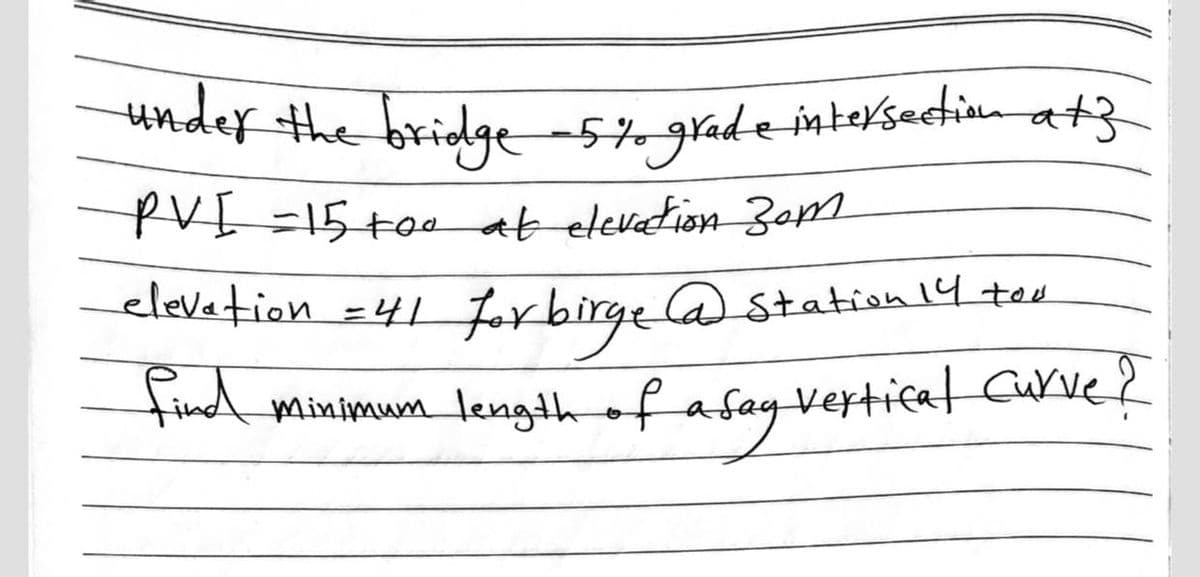 under the bridge -5% grade intersection at 3
PVI =15 +00 at elevation 30m
elevation =41 for birge @ station 14 +00
find minimum length of a sag vertical curve?